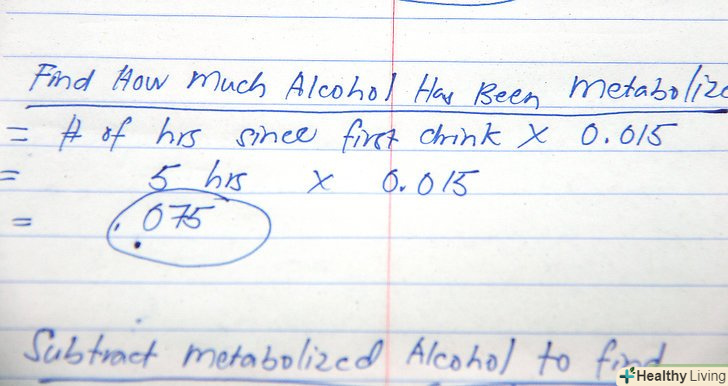 Find How Much Alcohol Has Been Metabolize
= # of hrs since first drink X 0.015
= 5 hrs X 0.015
= .075
Subtract metabolized Alcohol to find
Healthy Living